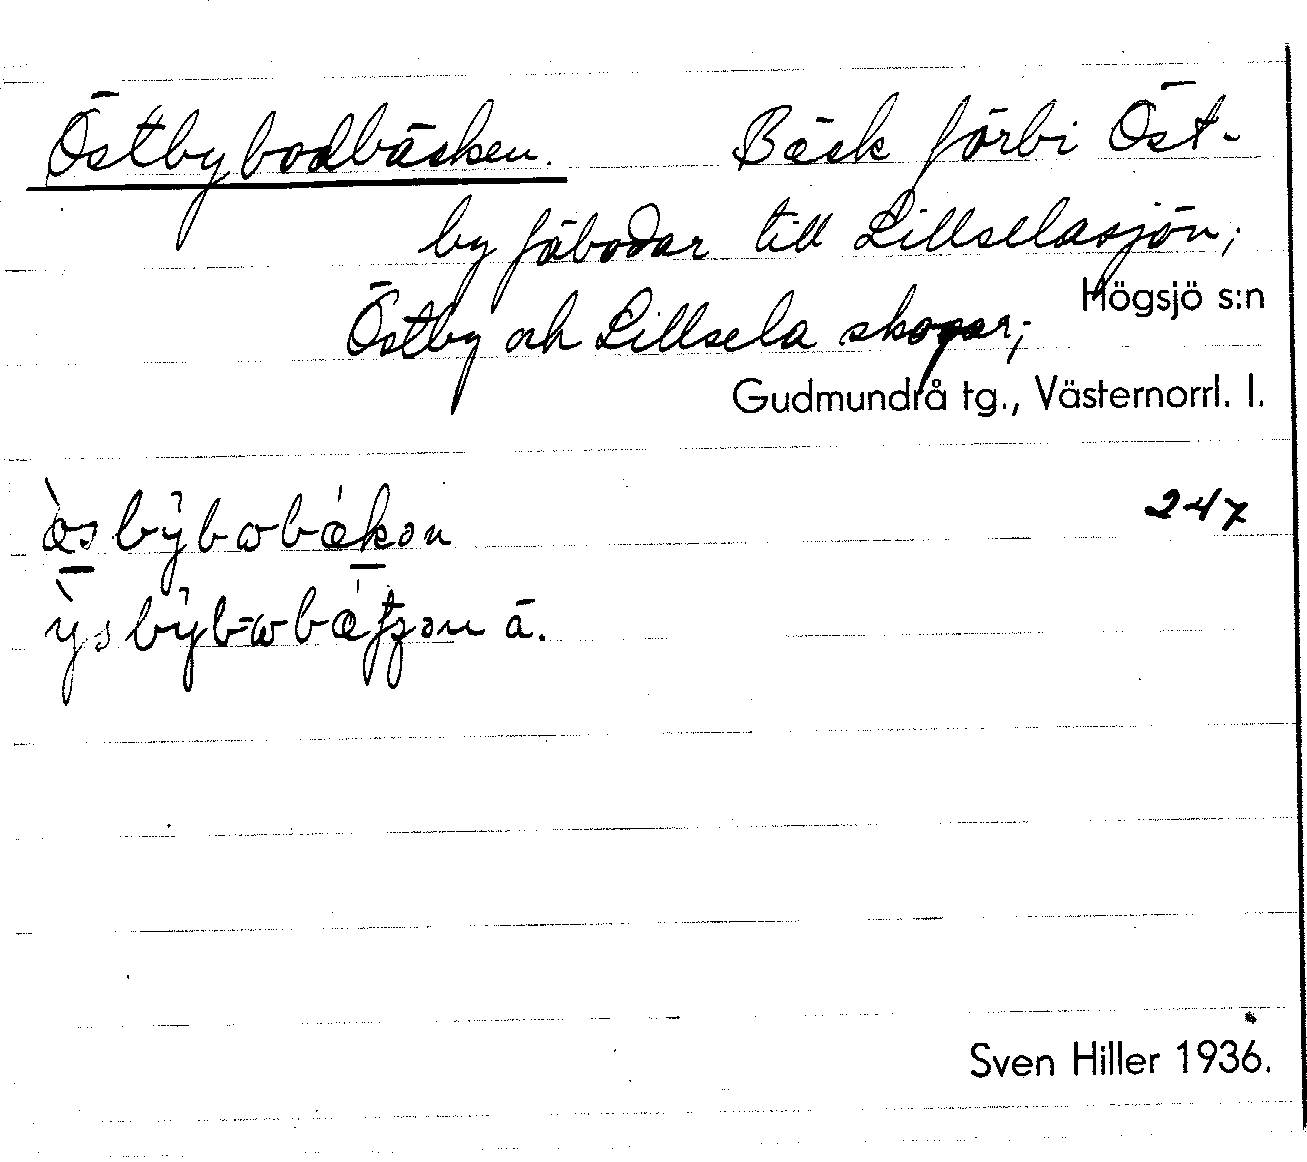 Östbybodbäcken. Bäck förbi Öst-
by fäbodar till Lillselasjön;
Högsjö s:n
Östby och Lillsela skogar;
Gudmundrå tg., Västernorrl. l.
247
Sven Hiller 1936.